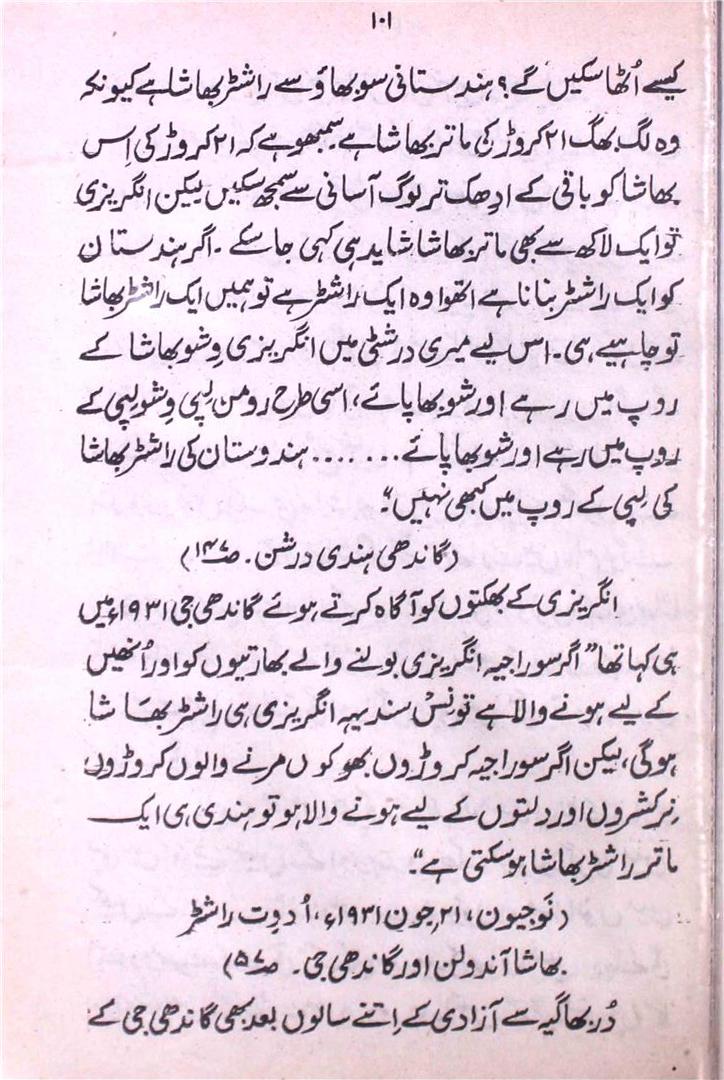 ۱۰۱
کیسے اُٹھا سکیں گے؟ ہندستانی سوبھاؤ سے راشٹر بھاشا ہے کیونکہ
وہ لگ بھگ ۲۱ کروڑ کی ماتر بھاشا ہے۔ سمبھو ہے کہ ۲۱ کروڑ کی اِس
بھاشا کو باقی کے ادھک تر لوگ آسانی سے سمجھ سکیں لیکن انگریزی
تو ایک لاکھ سے بھی ماتر بھاشا شاید ہی کہی جا سکے۔ اگر ہندستان
کو ایک راشٹر بنانا ہے اتھوا وہ ایک راشٹر ہے تو ہمیں ایک راشٹر بھاشا
تو چاہیے ہی۔ اس لیے میری درشٹی میں انگریزی وِشو بھاشا کے
روپ میں رہے اور شوبھا پائے، اسی طرح رومن لِپی وِشو لِپی کے
روپ میں رہے اور شوبھا پائے....... ہندوستان کی راشٹر بھاشا
کی لِپی کے روپ میں کبھی نہیں۔"
(گاندھی ہندی درشن۔ ص ۱۴۷)
انگریزی کے بھکتوں کو آگاہ کرتے ہوئے گاندھی جی ۱۹۳۱ء میں
ہی کہا تھا" اگر سوراجیہ انگریزی بولنے والے بھارتیوں کو اور اُنھیں
کے لیے ہونے والا ہے تو نسْ سندیہہ انگریزی ہی راشٹر بھاشا
ہوگی، لیکن اگر سوراجیہ کروڑوں بھوکوں مرنے والوں کروڑوں
نِرکشروں اور دلتوں کے لیے ہونے والا ہو تو ہندی ہی ایک
ماتر راشٹر بھاشا ہو سکتی ہے"۔
(نوجیون، ۲۱ جون ۱۹۳۱ء، اُدوِت راشٹر
بھاشا آندولن اور گاندھی جی۔ ص ۵۷)
دُربھاگیہ سے آزادی کے اِتنے سالوں بعد بھی گاندھی جی کے